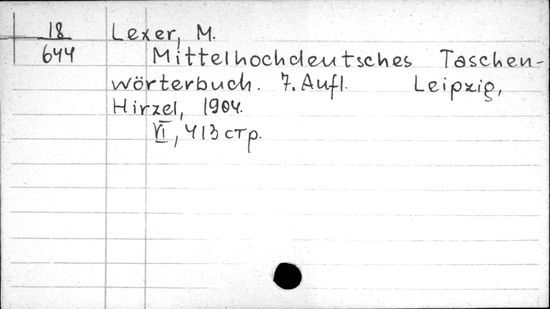 18 Lexer, M.
644 Mittelhochdeutsches Taschen-
wörterbuch. 7. Aufl. Leipzig,
Hirzel, 1904.
VI, 413 стр.